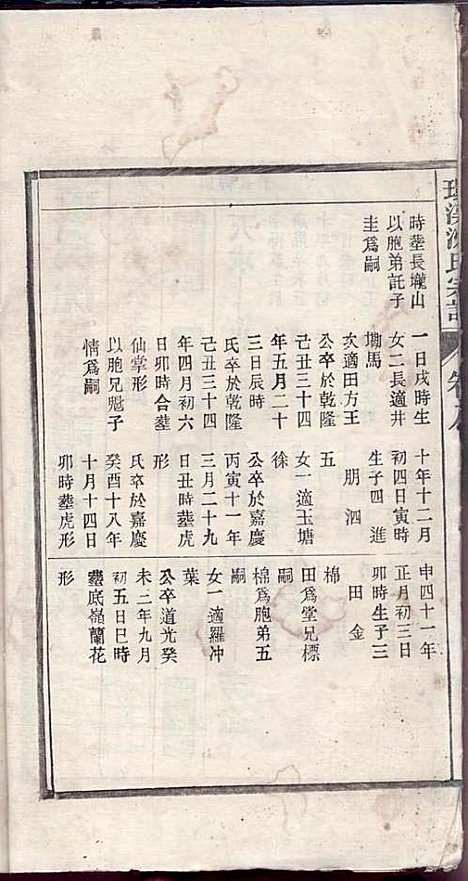 溪沈氏宗譜
卷
時塟長壠山
以胞弟託子
圭爲嗣
一日戌時生
女二長適井
坳馬
次適田方王
公卒於乾隆
己丑三十四
年五月二十
三日辰時
氏卒於乾隆
己丑三十四
年四月初六
日卯時合塟
仙掌形
以胞兄彪子
情爲嗣
十年十二月
初四日寅時
生子四 進
朋 泗
五
女一適玉塘
徐
公卒於嘉慶
丙寅十一年
三月二十九
日丑時塟虎
形
氏卒於嘉慶
癸酉十八年
十月十四日
卯時塟虎形
申四十一年
正月初三日
卯時生子三
田 金
棉
田爲堂兄標
嗣
棉爲胞弟五
嗣
女一適羅冲
葉
公卒道光癸
未三年九月
初五日巳時
塟底嶺蘭花
形